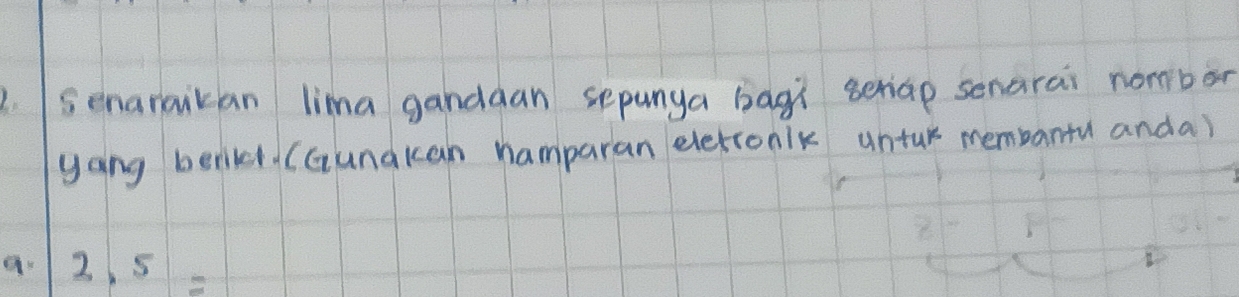 2. Senaraikan lima gandaan sepunya bagi setiap senarai nombor
yang berikut. (Gunakan hamparan eletronik untuk membantu anda)
a. 2, 5 =